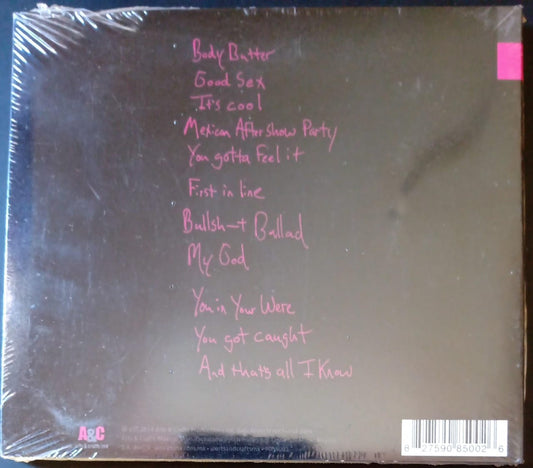 Body Butter
Good Sex
It's cool
Mexican Aftershow Party
You gotta Feel it
First in line
Bullsh–t Ballad
My God
You in Your Were
You got caught
And that's all I Know
A&C
8 27590 85002 6